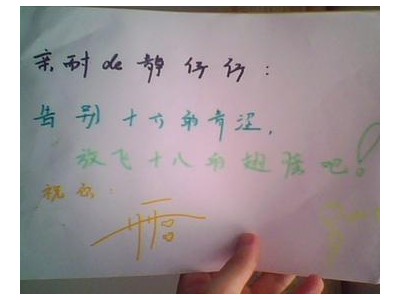 亲耐de静仔仔：
告别十六的青涩，
放飞十八的翅膀吧！
祝你：